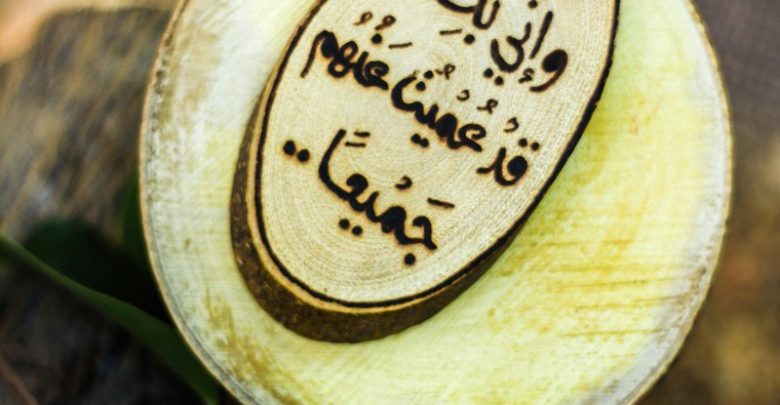 وإني بك
قدْ عُميتُ عَنْهُم
جَميعًا..